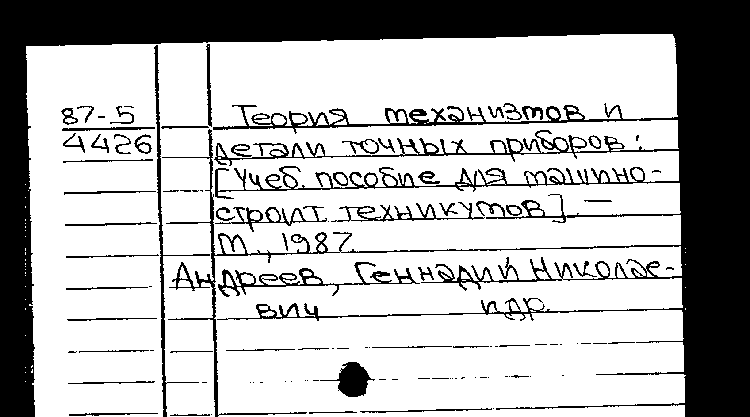 87-5 Теория механизмов и
4426 детали точных приборов:
[Учеб. пособие для машино-
строит. техникумов]. —
М., 1987.
Андреев, Геннадий Николае-
вич и др.